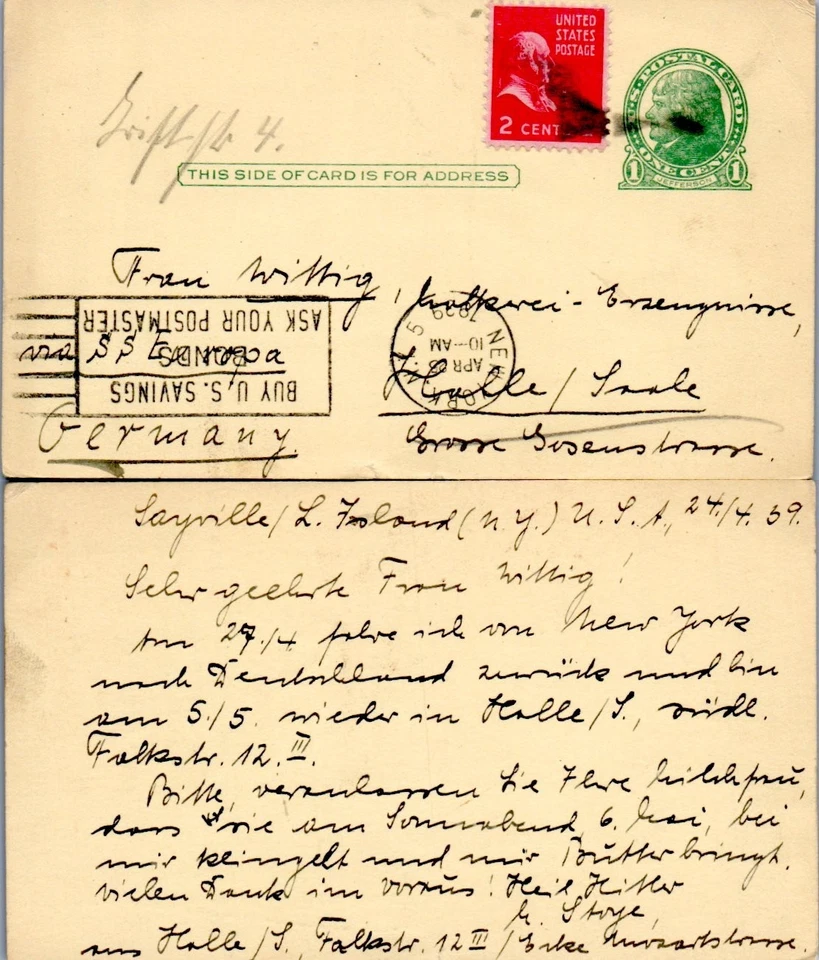 UNITED
STATES
POSTAGE
2 CENT
U.S. POSTAL CARD
ONE CENT
1 JEFFERSON 1
4.
THIS SIDE OF CARD IS FOR ADDRESS
Frau Wittig, Molkerei-Erzeugnisse,
via SS Europa
Halle/Saale
Germany.
Grosse Gosenstrasse.
BUY U.S. SAVINGS
BONDS
ASK YOUR POSTMASTER
NEW YORK, N.Y. 5
APR 26
10-AM
1939
Sayville/L. Island (N.Y.) U.S.A., 24./4. 39.
Sehr geehrte Frau Wittig!
Am 27./4 fahre ich von New York
nach Deutschland zurück und bin
am 5./5. wieder in Halle/S., südl.
Falkstr. 12. III.
Bitte, veranlassen Sie Ihre Milchfrau,
dass sie am Sonnabend, 6. Mai, bei
mir klingelt und mir Butter bringt.
Vielen Dank im voraus! Heil Hitler
M. Stoye,
aus Halle/S., Falkstr. 12 III / Ecke Mozartstrasse.